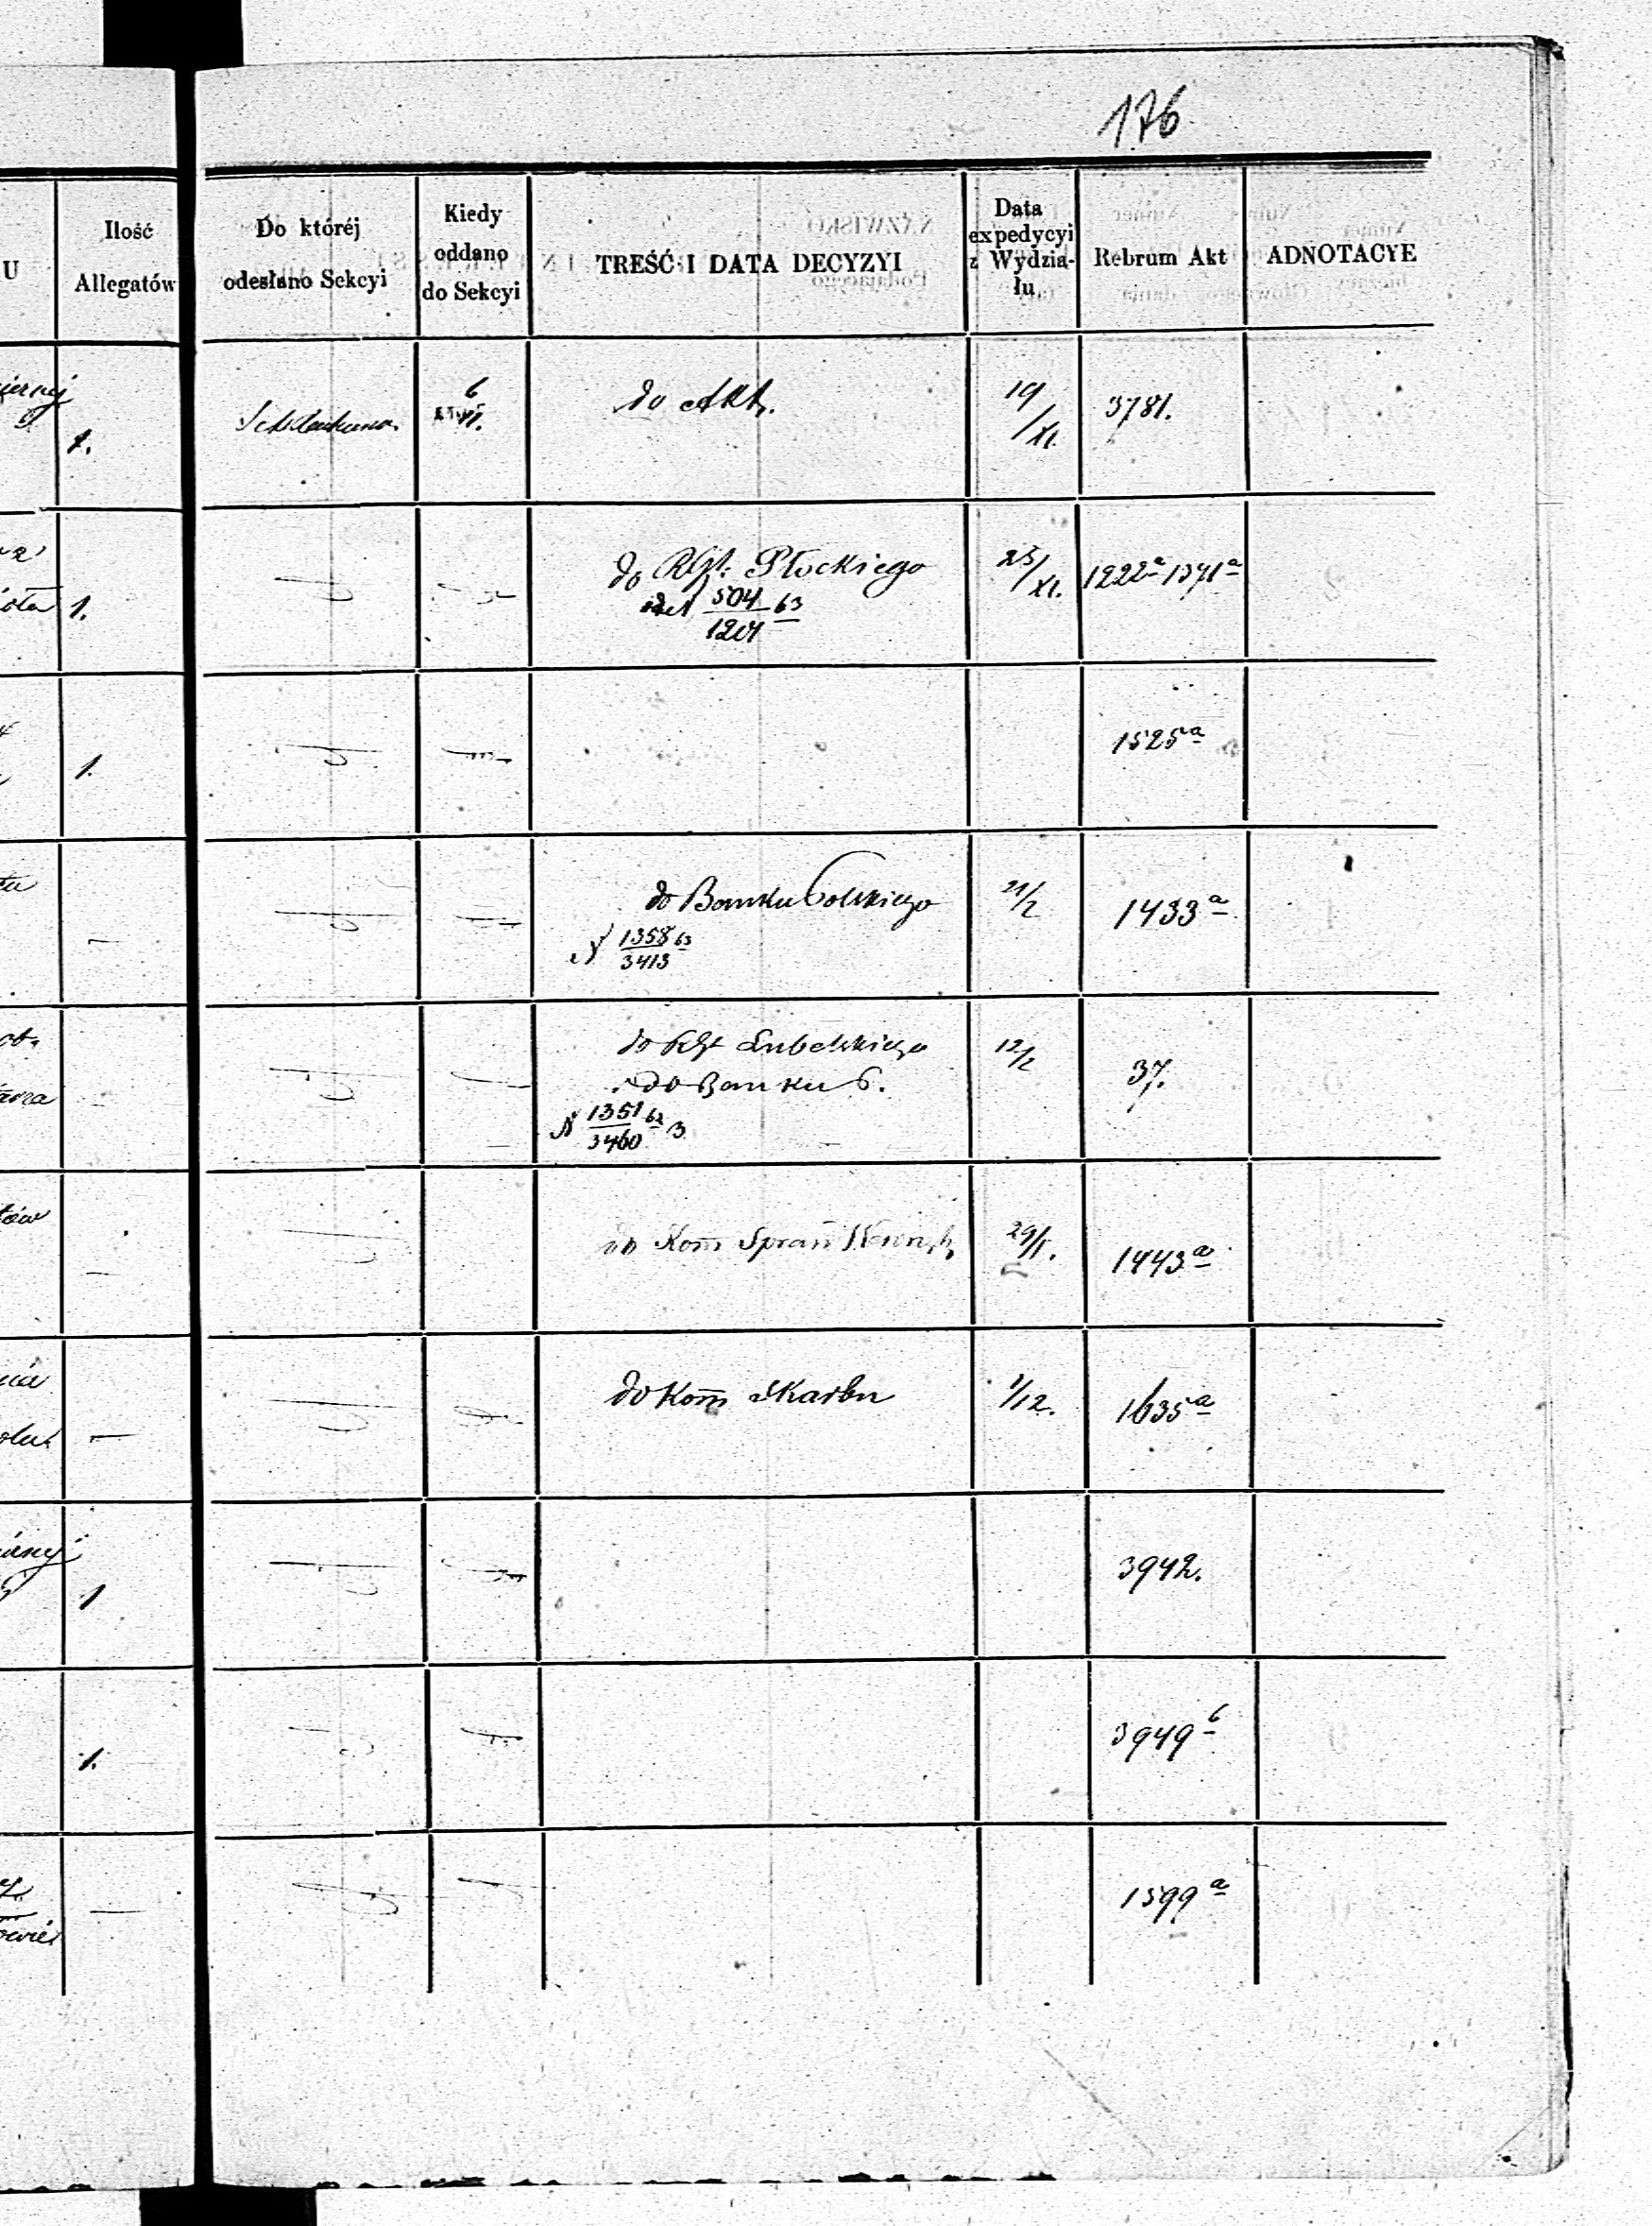 176
U
Ilość
Allegatów
Do któréj
odesłano Sekcyi
Kiedy
oddano
do Sekcyi
TREŚĆ I DATA DECYZYI
Data
expedycyi
z Wydzia-
łu
Rebrum Akt
ADNOTACYE
1.
6
XI.
do Akt.
19/XI.
3781.
1.
do Rzt. Płockiego
504 63
1201
23/XI.
1222a 1371a
1.
1525a
do Banku Polskiego
N 1358 63
3413
21/2
1433a
do Rzt Lubelskiego
i do Banku P.
N 1351 62
3460 3
12/2
37.
do Kom Spraw Wewn.
29/1.
1443a
do Kom Skarbu
1/12.
1635a
1
3942.
1.
3949b
1599a